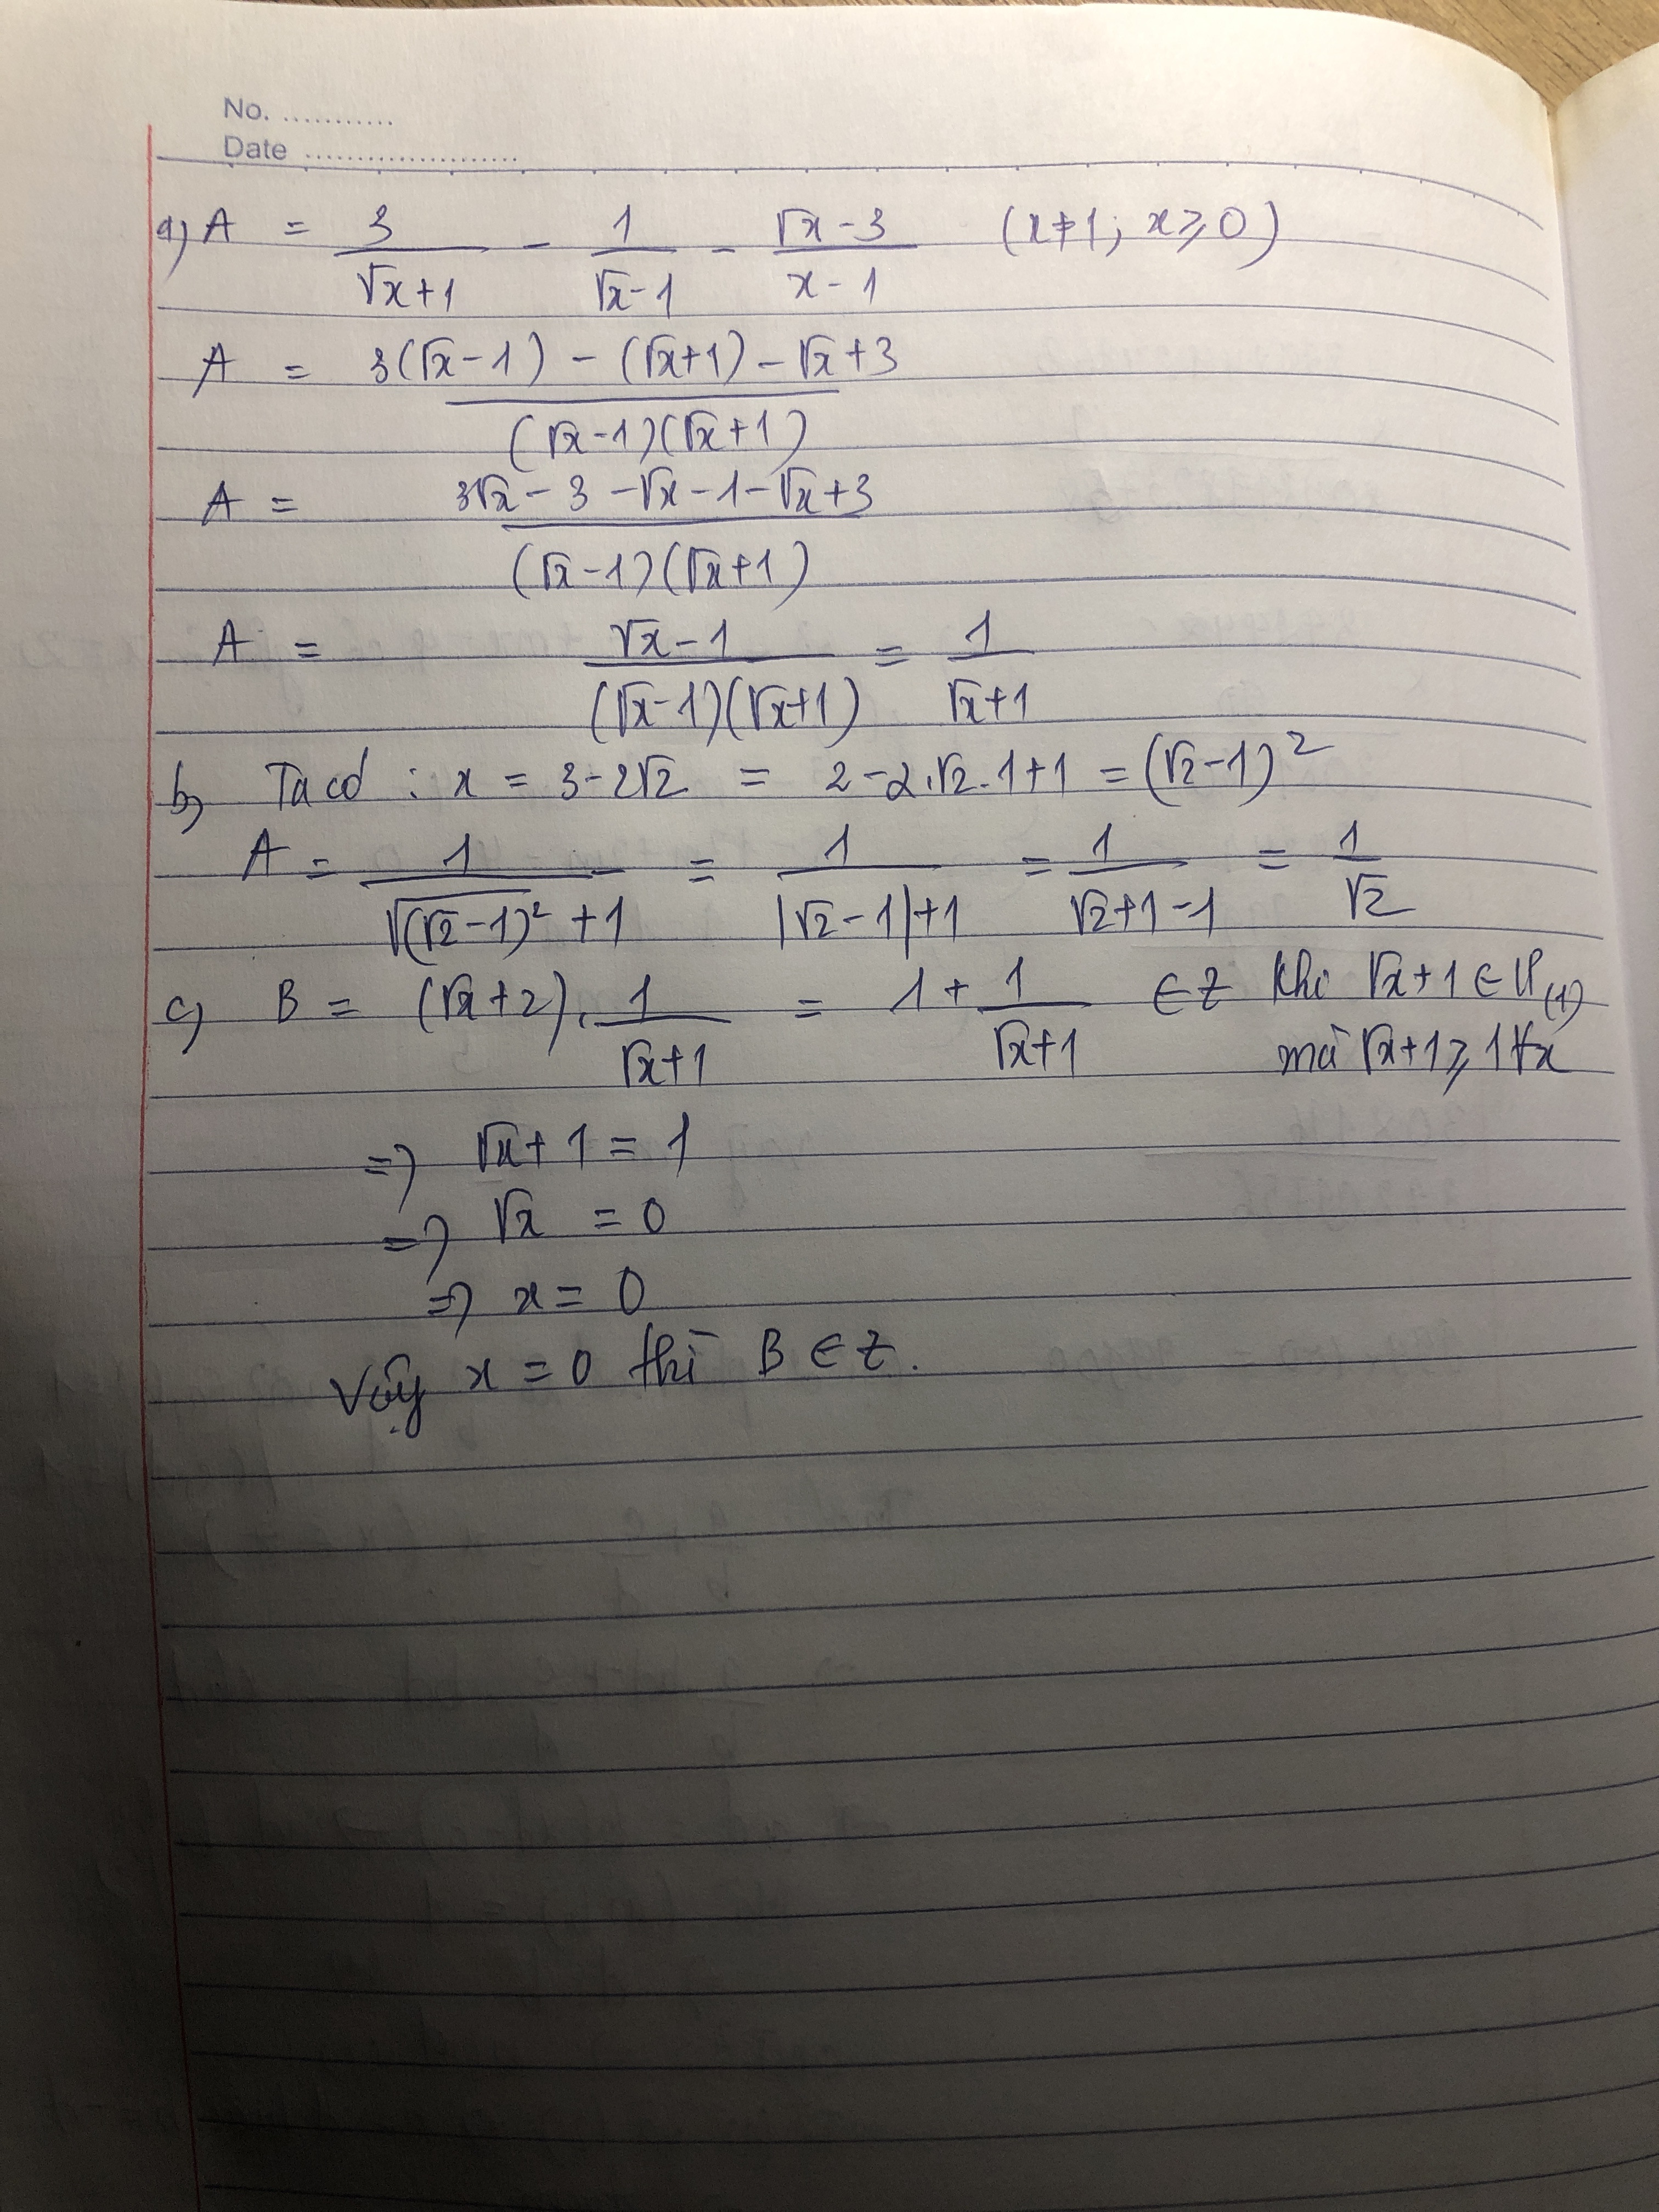 No. ...........
Date .....................
a) A = 3/(√x+1) - 1/(√x-1) - (√x-3)/(x-1) (x≠1; x≥0)
A = (3(√x-1) - (√x+1) - √x+3)/((√x-1)(√x+1))
A = (3√x-3-√x-1-√x+3)/((√x-1)(√x+1))
A = (√x-1)/((√x-1)(√x+1)) = 1/(√x+1)
b) Ta có : x = 3-2√2 = 2-2.√2.1+1 = (√2-1)²
A = 1/(√(√2-1)²+1) = 1/(|√2-1|+1) = 1/(√2+1-1) = 1/√2
c) B = (√x+2).1/(√x+1) = 1 + 1/(√x+1) ∈ Z khi √x+1 ∈ Ư(1)
mà √x+1≥1 ∀x
=> √x+1 = 1
=> √x = 0
=> x = 0
Vậy x = 0 thì B ∈ Z.